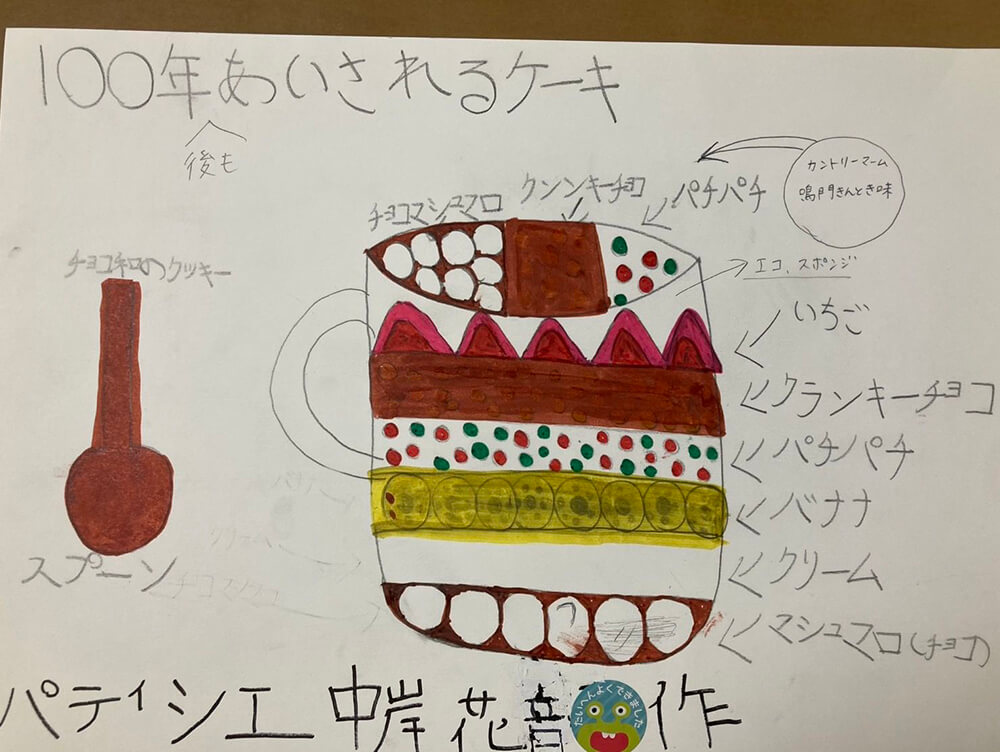 100年あいされるケーキ
後も
カントリーマーム
鳴門きんとき味
チョコマシュマロ
クンンキーチョコ
パチパチ
エコ、スポンジ
チョコ和のクッキー
いちご
クランキーチョコ
パチパチ
バナナ
クリーム
マシュマロ(チョコ)
スプーン
パティシエ 中岸 花音 作
たいへんよくできました